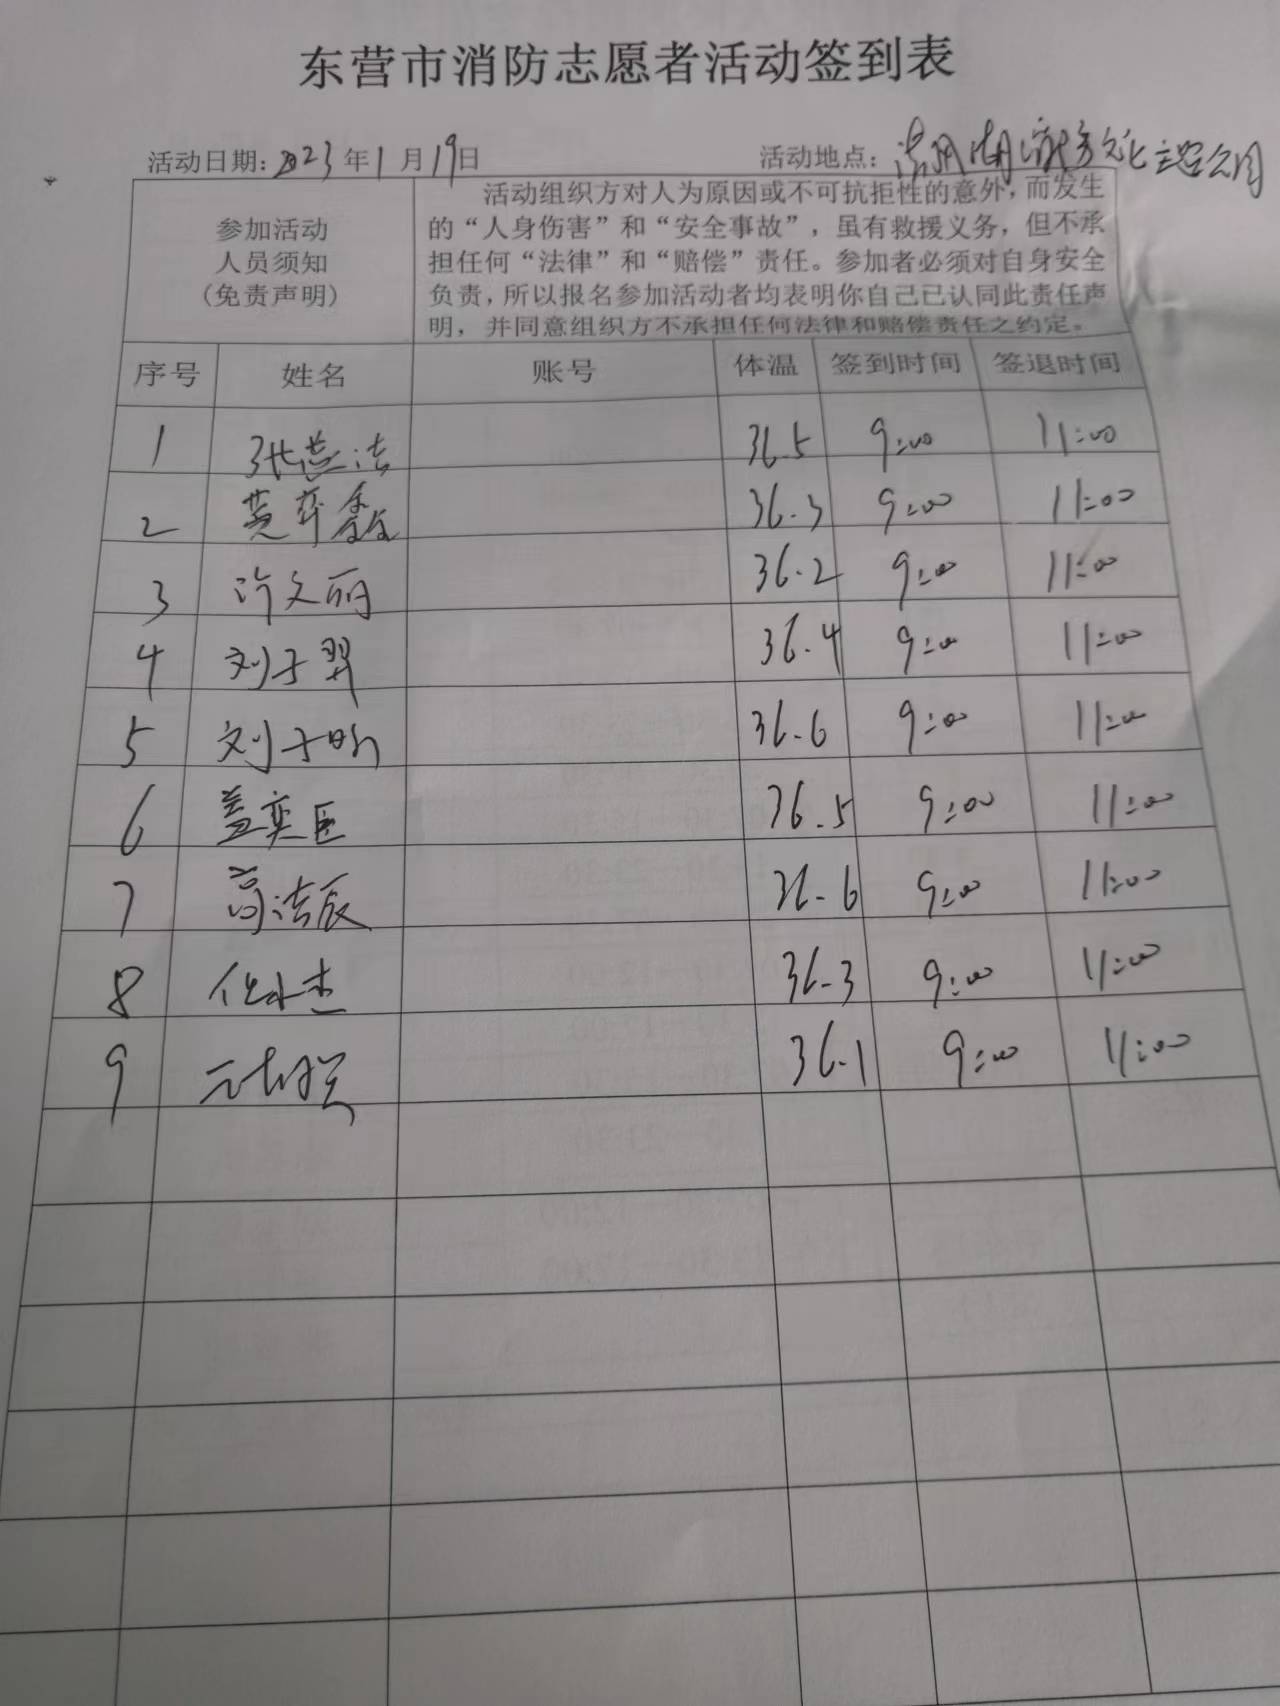 东营市消防志愿者活动签到表
活动日期: 2023年1月19日 活动地点: 文化主题公园
参加活动
人员须知
(免责声明)
活动组织方对人为原因或不可抗拒性的意外,而发生
的“人身伤害”和“安全事故”,虽有救援义务,但不承
担任何“法律”和“赔偿”责任。参加者必须对自身安全
负责,所以报名参加活动者均表明你自己已认同此责任声
明,并同意组织方不承担任何法律和赔偿责任之约定。
序号 姓名 账号 体温 签到时间 签退时间
1 张燕洁 36.5 9:00 11:00
2 36.3 9:00 11:00
3 许文丽 36.2 9:00 11:00
4 刘子羿 36.4 9:00 11:00
5 刘子昕 36.6 9:00 11:00
6 盖奕臣 36.5 9:00 11:00
7 高洁辰 36.6 9:00 11:00
8 任永杰 36.3 9:00 11:00
9 36.1 9:00 11:00